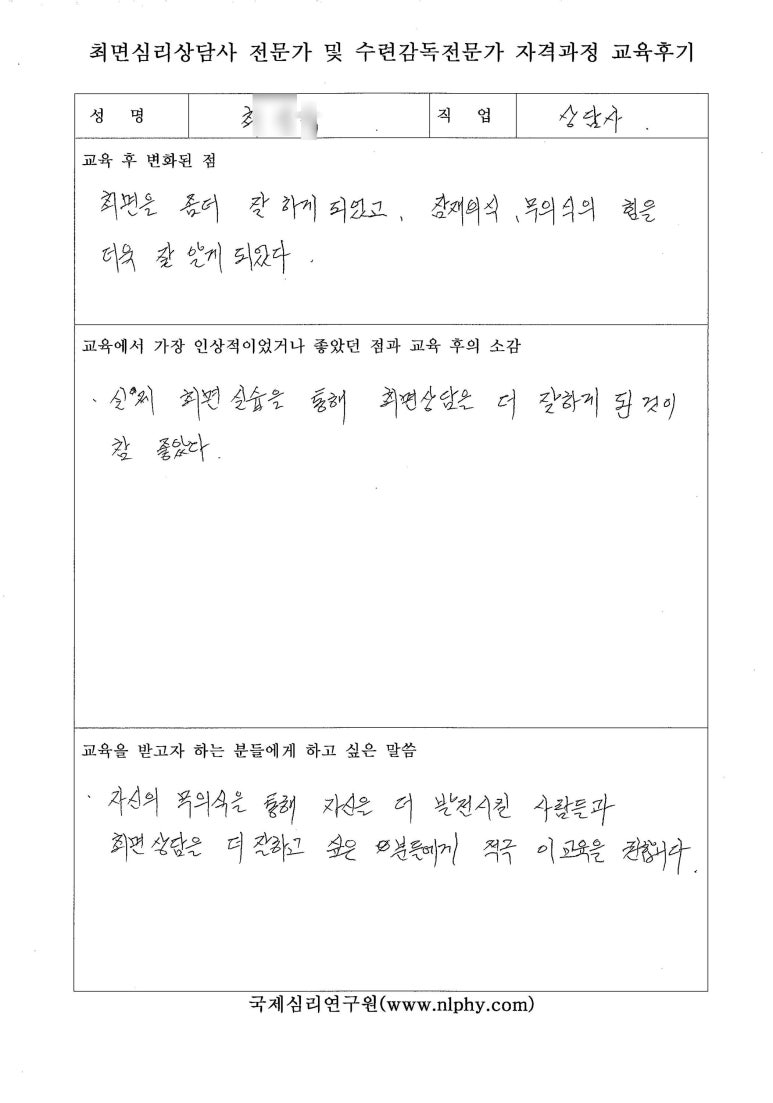 최면심리상담사 전문가 및 수련감독전문가 자격과정 교육후기
성 명 최 직 업 상담사.
교육 후 변화된 점
최면을 좀더 잘 하게 되었고, 잠재의식, 무의식의 힘을
더욱 잘 알게 되었다.
교육에서 가장 인상적이었거나 좋았던 점과 교육 후의 소감
· 실제 최면 실습을 통해 최면상담을 더 잘하게 된 것이
참 좋았다.
교육을 받고자 하는 분들에게 하고 싶은 말씀
· 자신의 무의식을 통해 자신을 더 발전시킬 사람들과
최면 상담을 더 잘하고 싶은 분들에게 적극 이 교육을 권합니다.
국제심리연구원(www.nlphy.com)